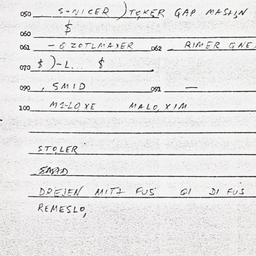 050 S-NICER ) TOKER GAP MASHIN
060 $
061 - GZOTLMAXER 062 RIMER GNE
070 $ ) - L. $
090 , SMID 091 —
100 MELOXE MALOXIM
STOLER
SMAD
DREJEN MITZ FUS GI DI FUS
REMESLO,